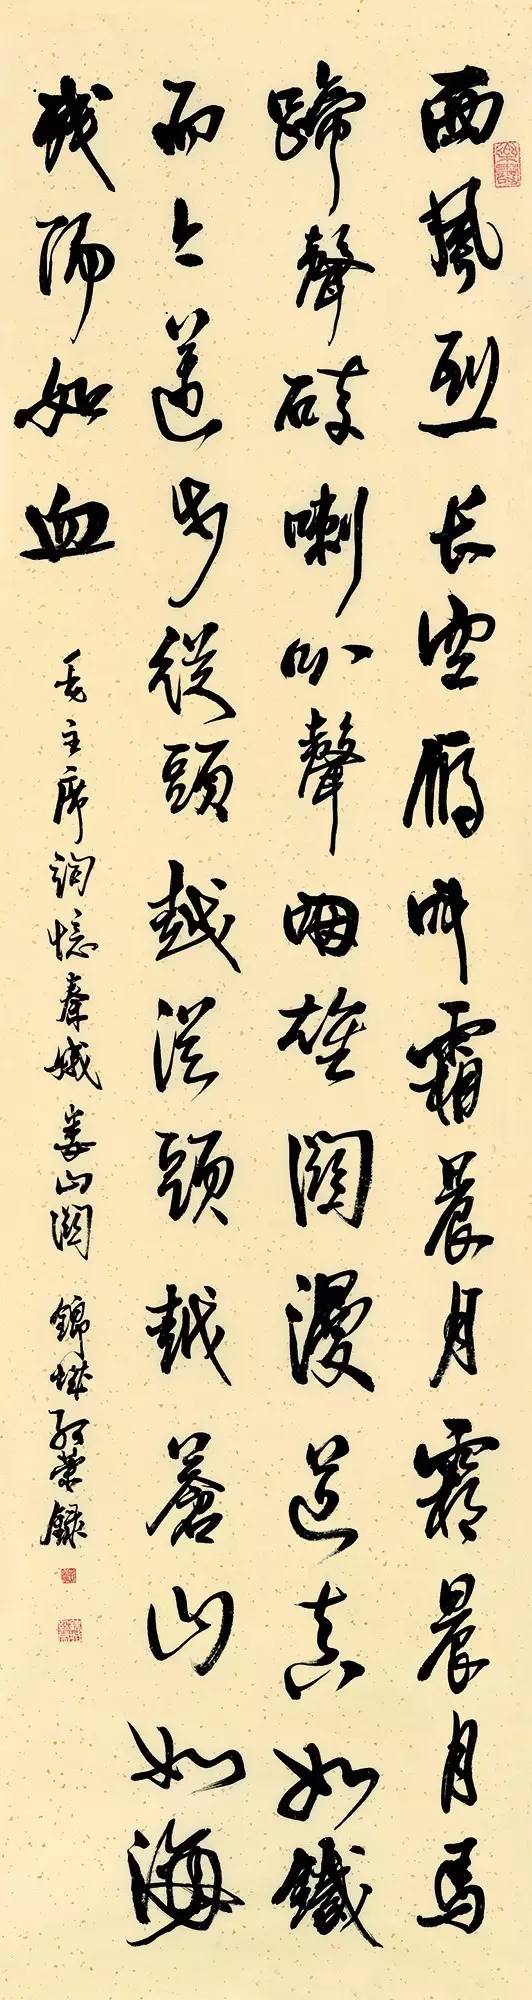 西風烈长空雁叫霜晨月霜晨月馬
蹄聲碎喇叭聲咽雄關漫道真如鐵
而今邁步從頭越從頭越蒼山如海
残陽如血
毛主席詞憶秦娥婁山關 錦城榮錄